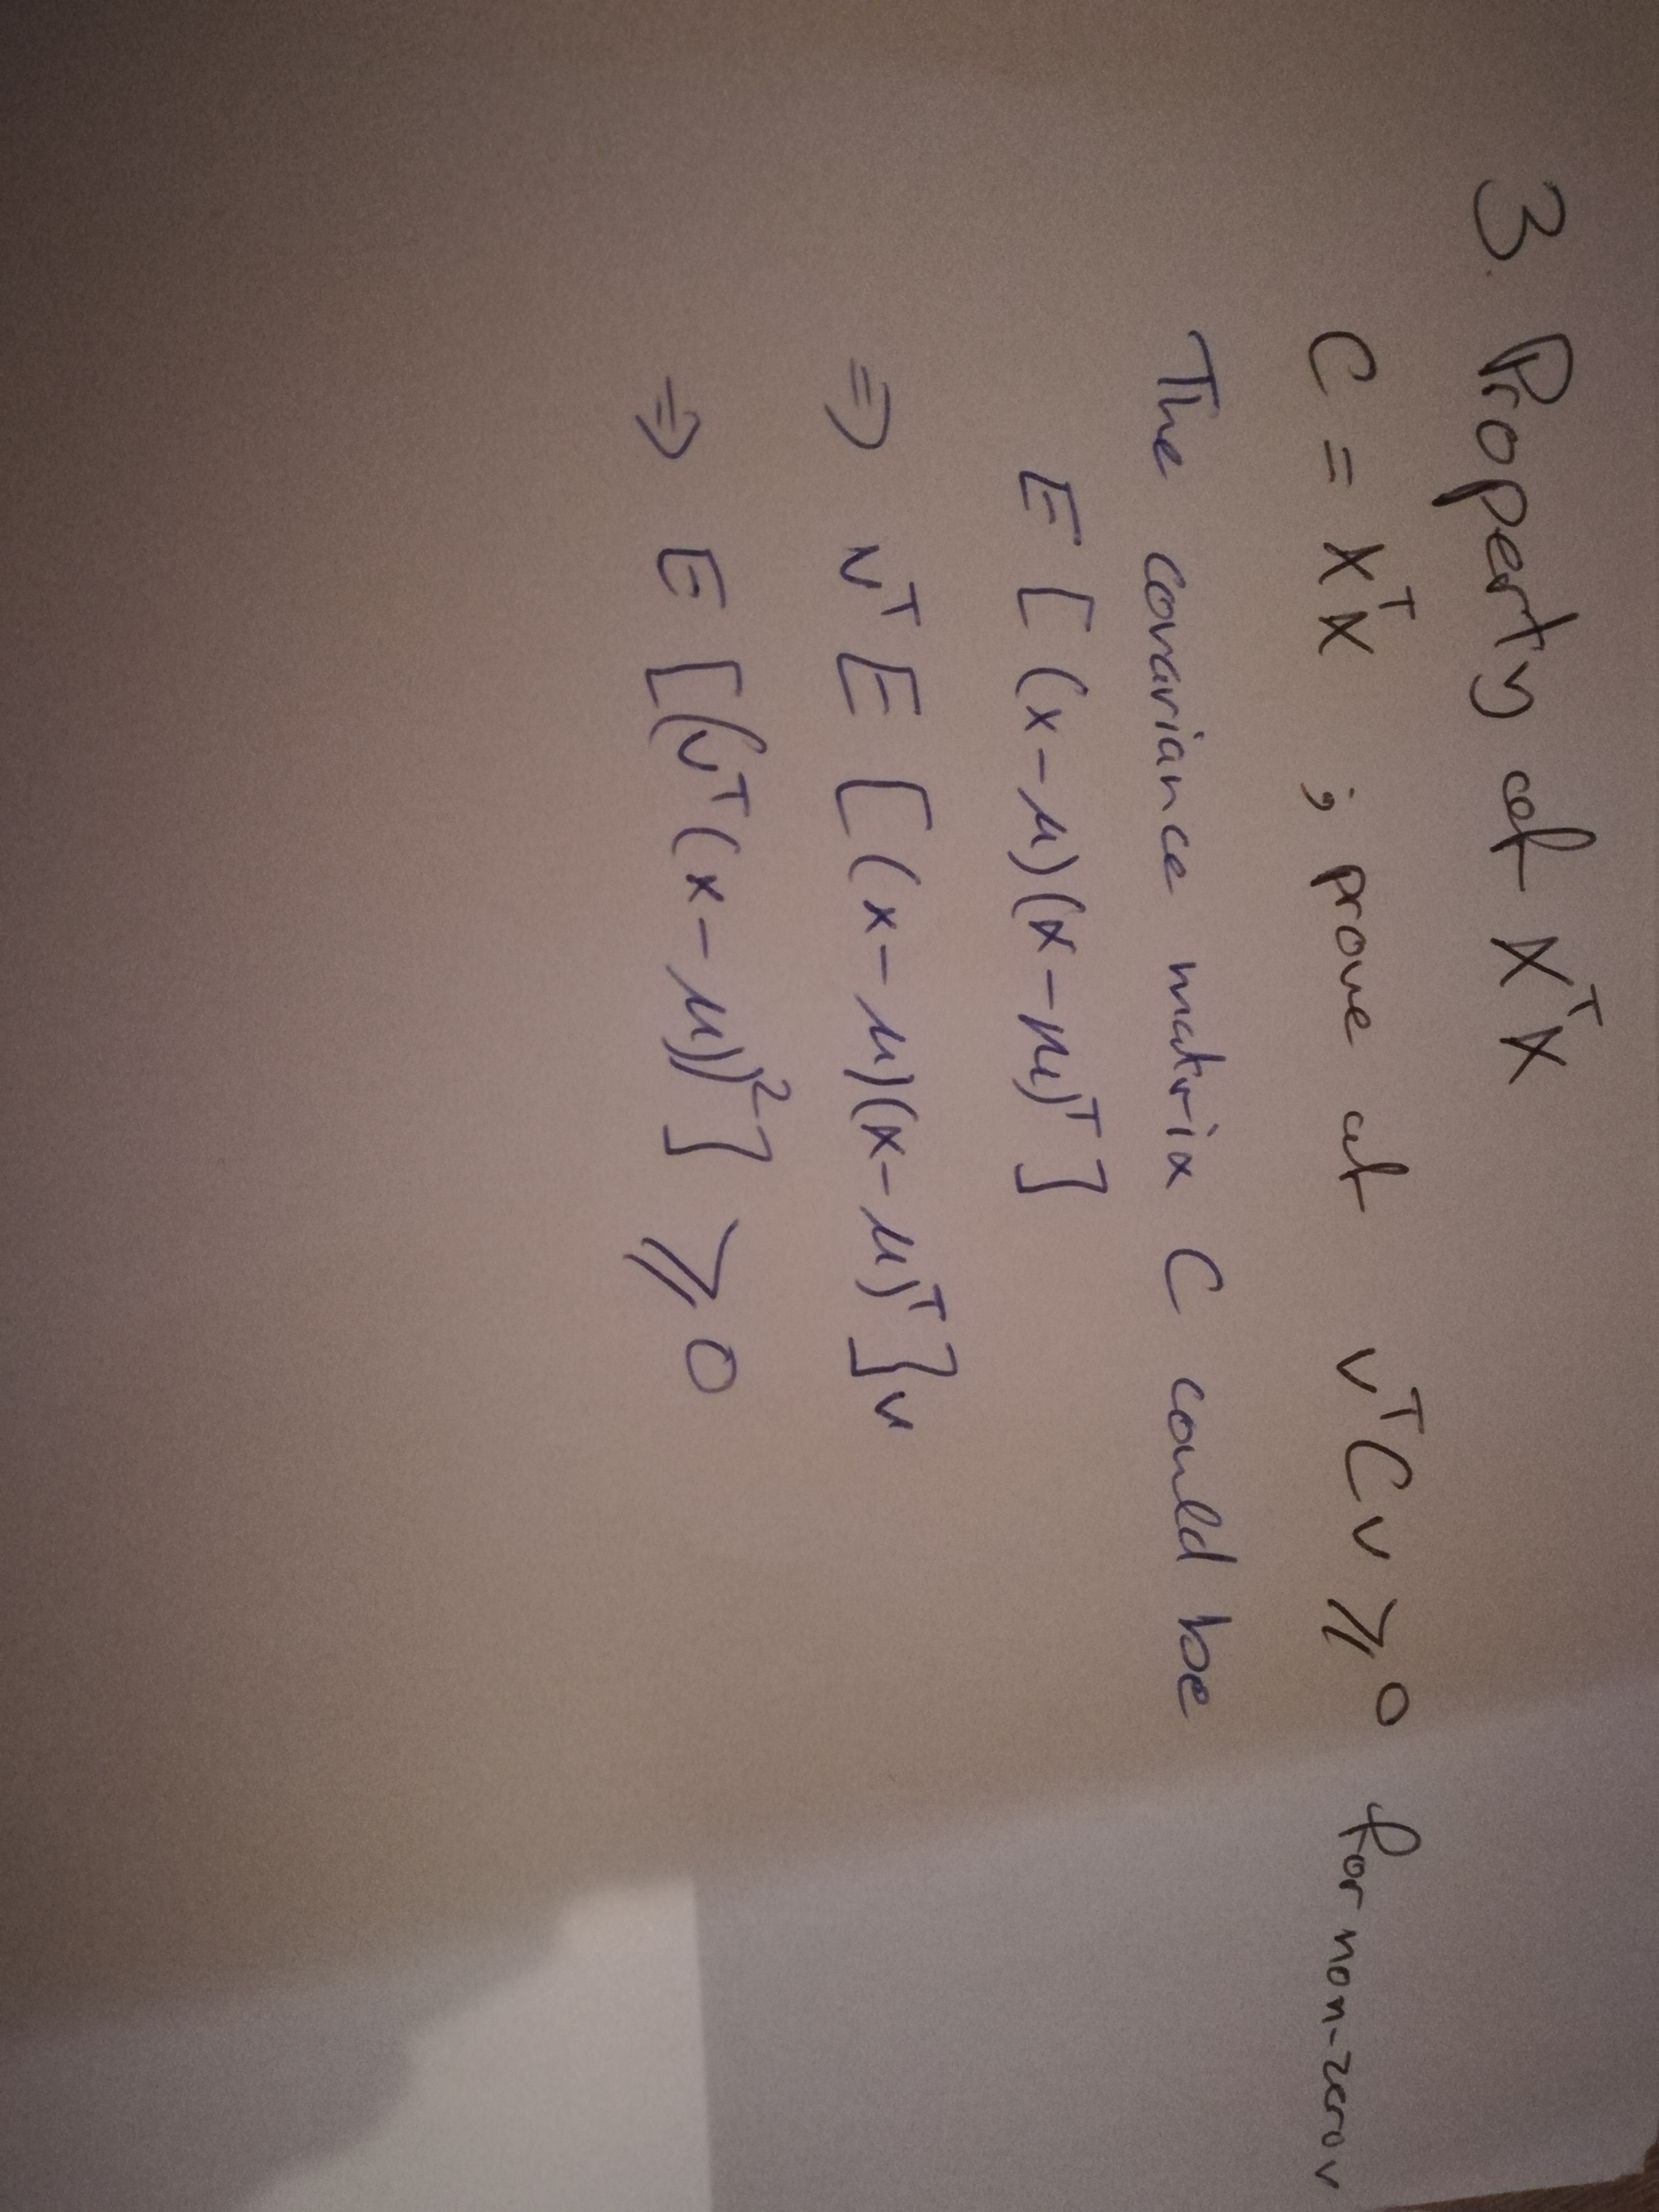 3. Property at XᵀX
C = XᵀX ; prove at vᵀCv ⩾ 0 for non-zero v
The covariance matrix C could be
E [ (x-μ)(x-μ)ᵀ ]
⇒ vᵀ E [(x-μ)(x-μ)ᵀ]v
⇒ E [(vᵀ(x-μ))²] ⩾ 0